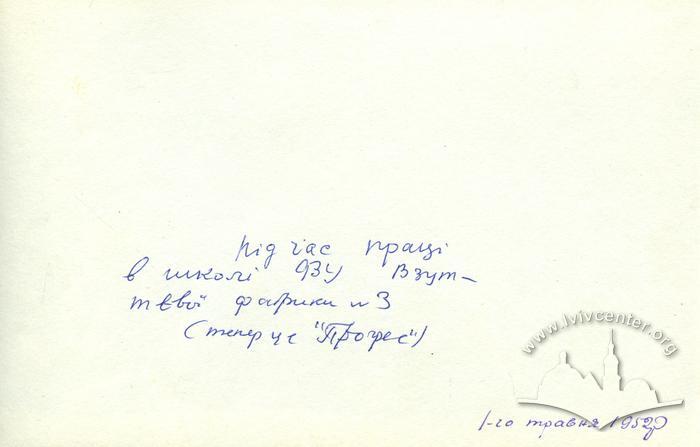 під час праці
в школі ФЗУ Взут-
тєвої фабрики №3
(тепер це "Прогрес")
www.lvivcenter.org
1-го травня 1952р